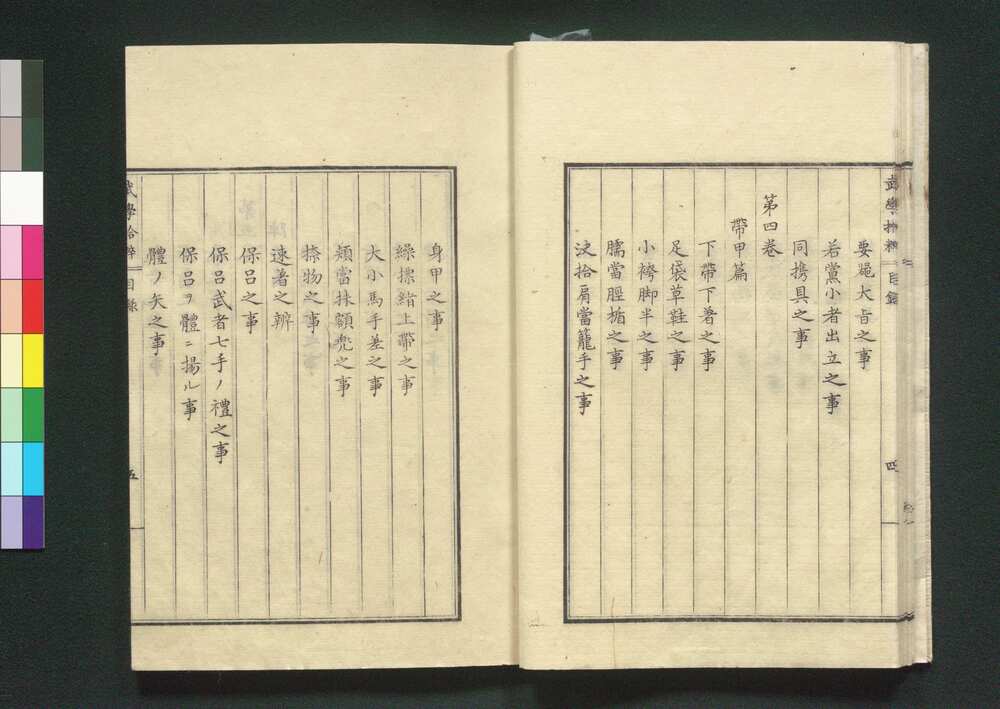 武學拾粹
目錄
四
要䋲大旨之事
若黨小者出立之事
同携具之事
第四卷
帶甲篇
下帶下着之事
足袋草鞋之事
小袴脚半之事
臑當脛楯之事
決拾肩當籠手之事
身甲之事
繰摞緒上帶之事
大小馬手差之事
頬當抹額兜之事
捺物之事
速着之辨
保呂之事
保呂武者七手ノ禮之事
保呂ヲ體ニ揚ル事
體ノ矢之事
武學拾粹
目錄
五